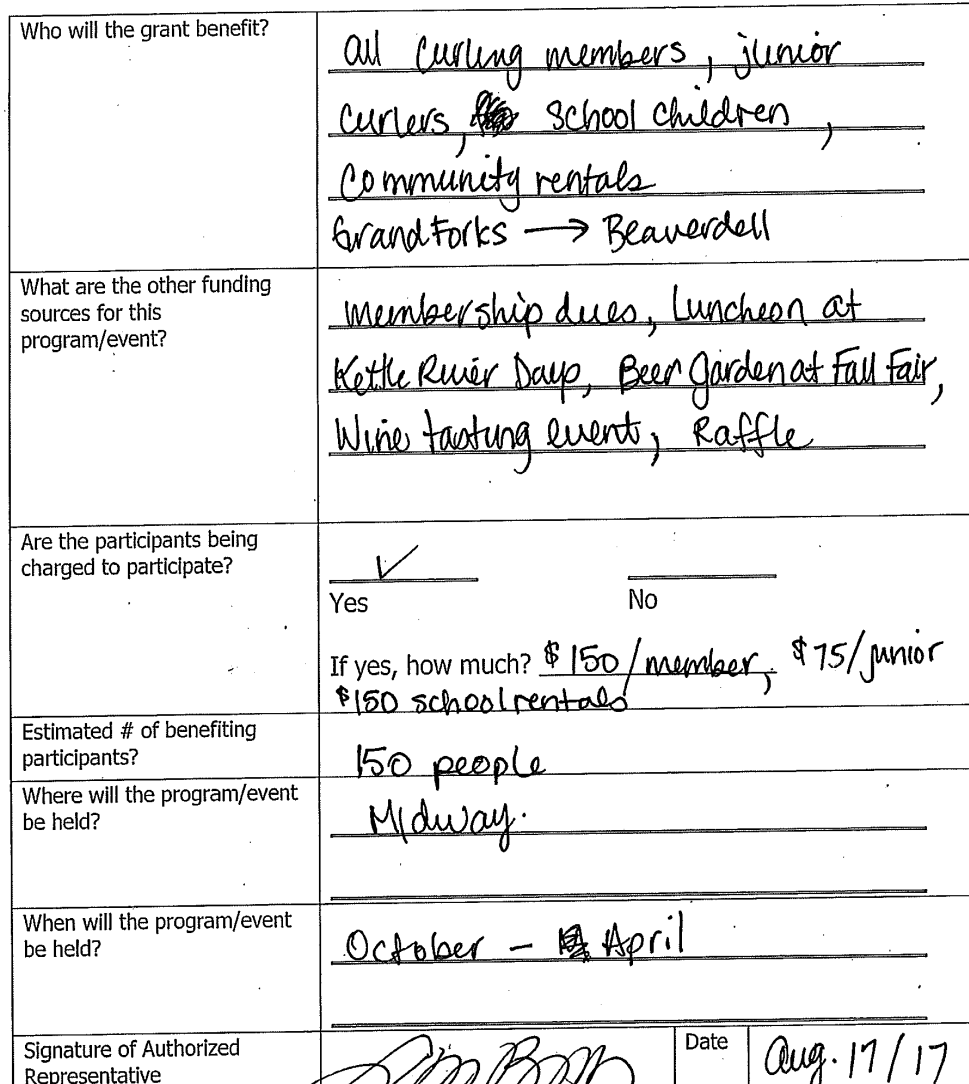 Who will the grant benefit?
all curling members, junior
curlers, school children,
Community rentals
Grand Forks → Beaverdell
What are the other funding
sources for this
program/event?
membership dues, Luncheon at
Kettle River Days, Beer Garden at Fall Fair,
Wine tasting event, Raffle
Are the participants being
charged to participate?
Yes No
If yes, how much? $150/member, $75/junior
$150 school rentals
Estimated # of benefiting
participants?
150 people
Where will the program/event
be held?
Midway.
When will the program/event
be held?
October - April
Signature of Authorized
Representative
Date
Aug. 17/17